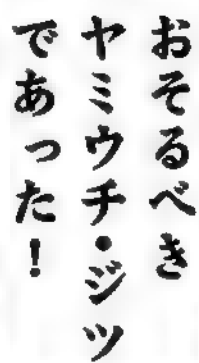 おそるべき
ヤミウチ・ジツ
であった!